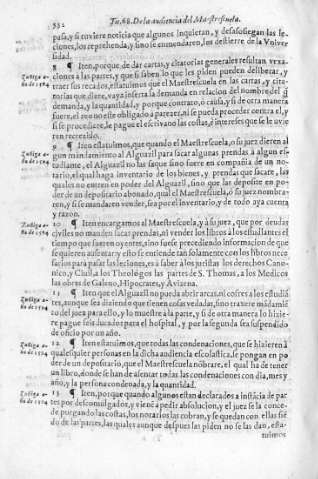 532 Tit. 68. De la audiencia del Maestrescuela.
passa, y si tuviere noticia que algunos inquietan, y desasosiegan las le-
ciones, los reprehenda, y sino se emendaren, los destierre de la Univer
sidad.
¶ Iten, porque de dar cartas, y citatorias generales resultan vexa-
ciones a las partes, y que si saben lo que les piden pueden deliberar, y
traer sus recados, estatuimos que el Maestrescuela en las cartas, y cita-
torias que diere, vaya inserta la demanda en relacion del nombre del q̃
demanda, y la quantidad, y porque contrato, ò causa, y si de otra manera
fuere, el reo no este obligado a parecer, ni se pueda proceder contra el, y
si se procediere, le pague el escrivano las costas, è intereses que se le avie
ren recrecido.
9 ¶ Iten estatuimos, que quando el Maestrescuela, o su juez dieren al
gun mandamiento al Alguazil para sacar algunas prendas à algun es-
tudiante, el Alguazil no las saque sino fuere en compañia de un no-
tario, el qual haga inventario de los bienes, y prendas que sacare, las
quales no entren en poder del Alguazil, sino que las deposite en po-
der de un depositario abonado, qual el Maestrescuela, ò su juez nombra-
ren, y si se mandaren vender, sea por el inventario, y de todo aya cuenta
y razon.
10 ¶ Iten encargamos al Maestrescuela, y à su juez, que por deudas
civiles no manden sacar prendas, ni vender los libros à los estudiantes el
tiempo que fueren oyentes, sino fuese precediendo informacion de que
se quieren ausentar: y esto se entiende tan solamente con los libros nece
sarios para passar las leciones, es a saber à los juristas los derechos Cano-
nico, y Civil, a los Theologos las partes de S. Thomas, a los Medicos
las obras de Galeno, Hipocrates, y Avicena.
11 ¶ Iten que el Alguazil no pueda abrir arcas, ni cofres a los estudiã
tes, aunque sea diziendo que tienen cosas vedadas, sino traxere mandamiẽ
to del juez para ello, y lo muestre a la parte, y si de otra manera lo hizie
re pague seis ducados para el hospital, y por la segunda sea suspendido
de oficio por un año.
12 ¶ Iten estatuimos, que todas las condenaciones, que se hizieren à
qualesquier personas en la dicha audiencia escolastica, se pongan en po
der de un depositario, que el Maestrescuela nõbrare, el qual ha de tener
un libro, donde se han de asentar todas las condenaciones con dia, mes y
año, y la persona condenada, y la quantidad.
13 ¶ Iten, porque quando algunos estan declarados a instãcia de par
tes por descomulgados, y vienẽ a pedir absolucion, y el juez se la conce-
de purgando las costas, los notarios las cobran, y se quedan con ellas siẽ
do de las partes, las quales aunque despues las piden no se las dan, esta-
tuimos